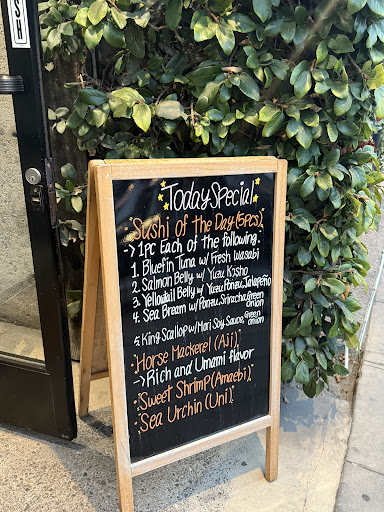 Today Special
Sushi of the Day (5pcs)
→ 1pc Each of the following.
1. Bluefin Tuna w/ Fresh Wasabi
2. Salmon Belly w/ Yuzu Kosho
3. Yellowtail Belly w/ Yuzu Ponzu, Jalapeño
4. Sea Bream w/ Ponzu, Sriracha, Green onion
5. King Scallop w/ Nori Soy Sauce, Green onion
Horse Mackerel (Aji)
→ Rich and Umami flavor
Sweet Shrimp (Amaebi)
Sea Urchin (Uni)